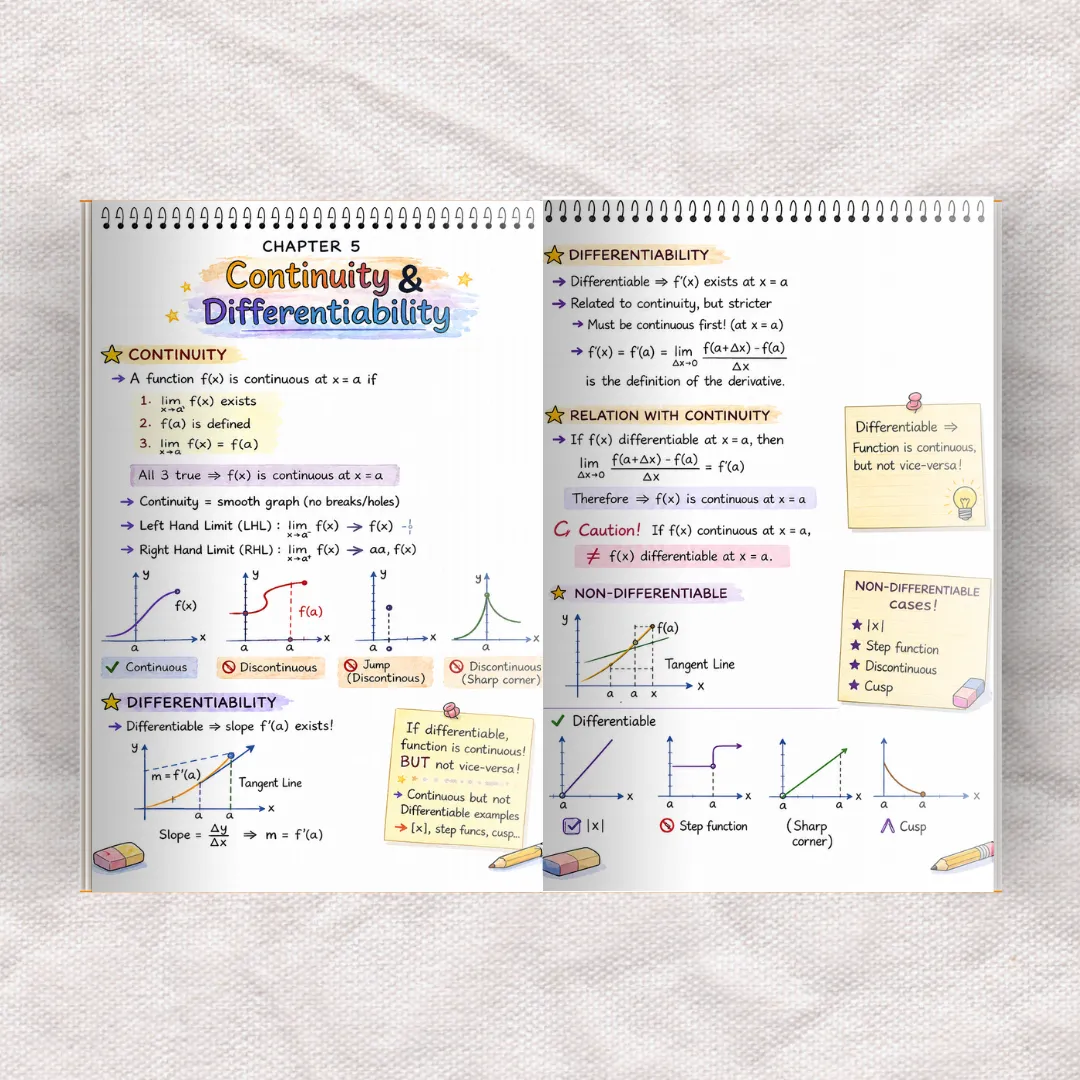 CHAPTER 5
Continuity &
Differentiability
CONTINUITY
→ A function f(x) is continuous at x = a if
1. lim f(x) exists
x→a
2. f(a) is defined
3. lim f(x) = f(a)
x→a
All 3 true ⇒ f(x) is continuous at x = a
→ Continuity = smooth graph (no breaks/holes)
→ Left Hand Limit (LHL) : lim f(x) → f(x)
x→a⁻
→ Right Hand Limit (RHL) : lim f(x) → aa, f(x)
x→a⁺
y
f(x)
x
a
y
f(a)
x
a a
y
x
a
y
x
a
✓ Continuous
Discontinuous
Jump
(Discontinous)
Discontinuous
(Sharp corner)
DIFFERENTIABILITY
→ Differentiable ⇒ slope f'(a) exists!
y
m = f'(a)
Tangent Line
x
a a
Slope = Δy/Δx ⇒ m = f'(a)
If differentiable,
function is continuous!
BUT not vice-versa!
→ Continuous but not
Differentiable examples
→ [x], step funcs, cusp...
DIFFERENTIABILITY
→ Differentiable ⇒ f'(x) exists at x = a
→ Related to continuity, but stricter
→ Must be continuous first! (at x = a)
→ f'(x) = f'(a) = lim f(a+Δx) - f(a)
Δx→0 Δx
is the definition of the derivative.
RELATION WITH CONTINUITY
→ If f(x) differentiable at x = a, then
lim f(a+Δx) - f(a) = f'(a)
Δx→0 Δx
Therefore ⇒ f(x) is continuous at x = a
Caution! If f(x) continuous at x = a,
≠ f(x) differentiable at x = a.
Differentiable ⇒
Function is continuous,
but not vice-versa!
NON-DIFFERENTIABLE
y
f(a)
Tangent Line
x
a a x
NON-DIFFERENTIABLE
cases!
★ |x|
★ Step function
★ Discontinuous
★ Cusp
✓ Differentiable
x
a
x
a a
x
a a
x
a
|x|
Step function
(Sharp
corner)
Cusp